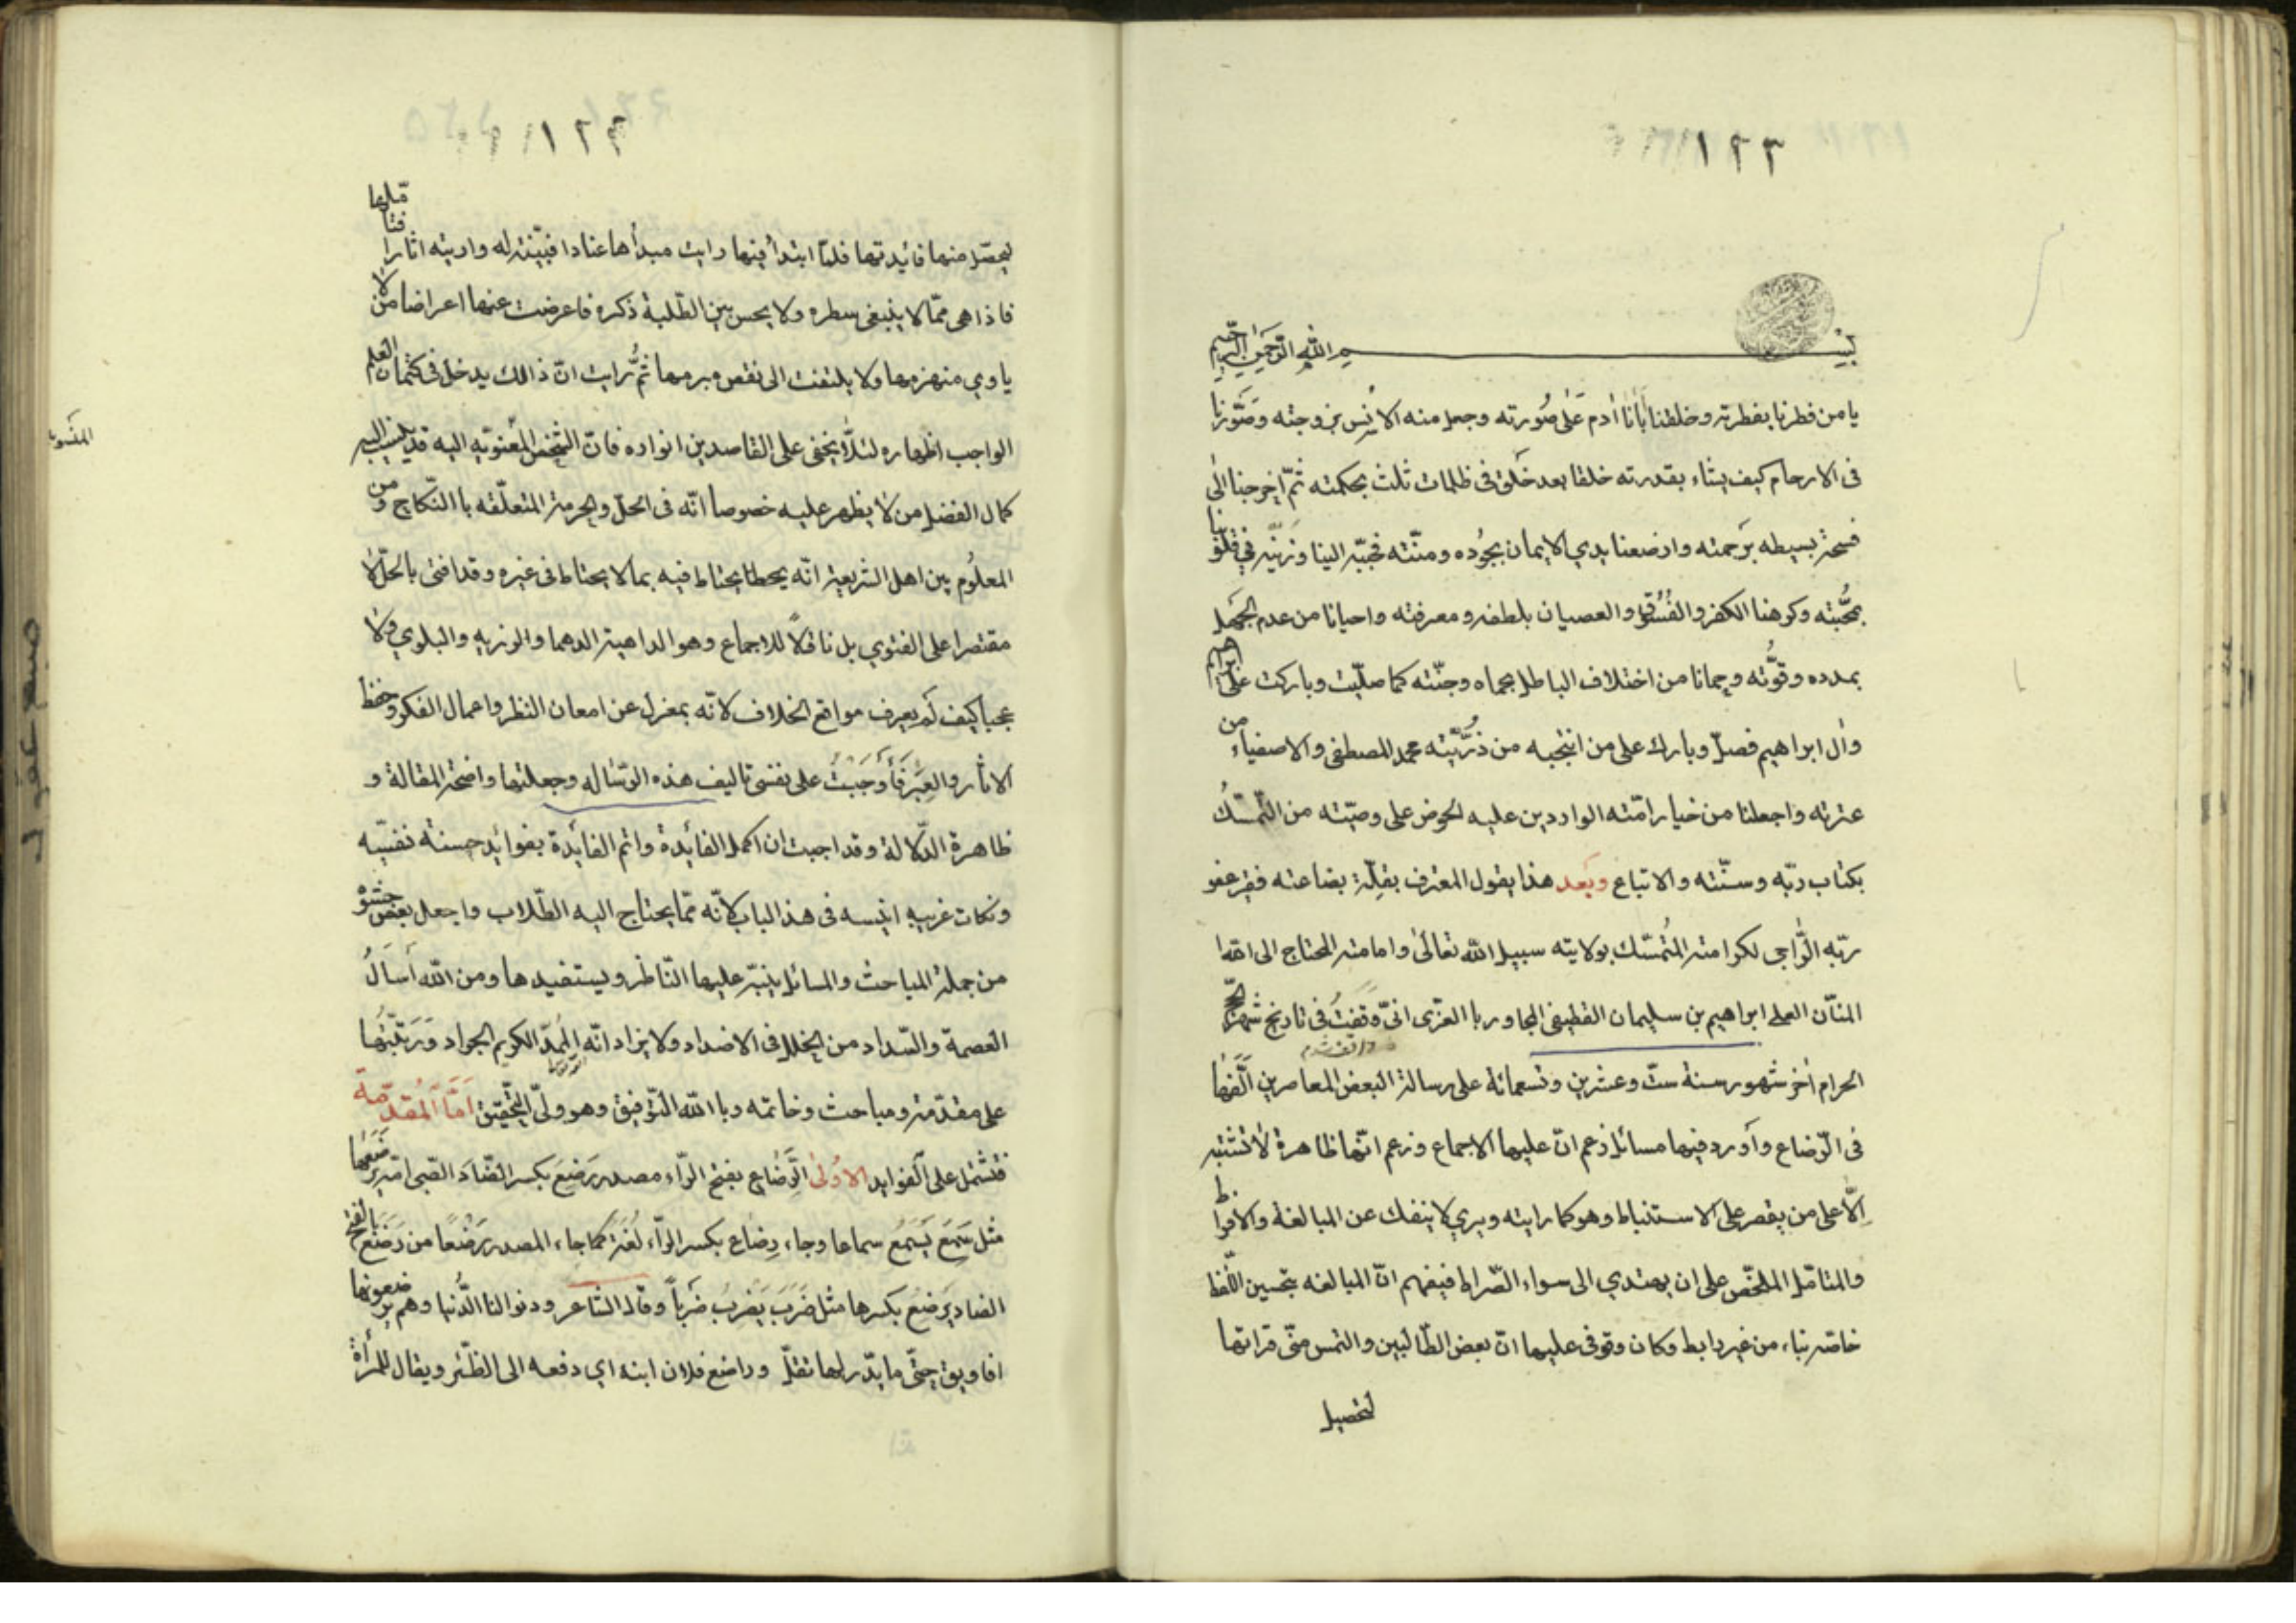 ١٢٣
بسم الله الرحمن الرحيم
يا من فطرنا بفطرته وخلقنا أبانا أدم على صُورته وجعل منه الانس بزوجته وصَوَّرنا
فى الارحام كيف يشاء بقدرته خلقا بعد خلق فى ظلمات ثلث بحكمته ثمّ اخرجنا الى
فسحة بسيطه برحمته وارضعنا بدي الايمان بجوُده ومنّته فحبّبه الينا وزيّنه في قلوبنا
بمحَّبته وكرهنا الكفر والفُسُوق والعصيان بلطفه ومعرفته واحيانا من عدم الجهل
بمدده وقوَّته وحمانا من اختلاف الباطل بحماه وجنّته كما صلّيت وباركت على ابراهيم
وال ابراهيم فصلّ وبارك على من انتجبه من ذُرّيّته محمد المصطفى والاصفياء من
عترته واجعلنا من خيار امّته الواردين عليه الحوض على وصيّته من التّمسّك
بكتاب ربّه وسنّته والاتباع وبعد هذا يقول المعترف بقلّة بضاعته فقير عفو
ربّه الرَّاجى لكرامته المُتمسّك بولايته سبيل الله تعالى وامامته المحتاج الى الله
المنّان العلى ابراهيم بن سليمان القطيفى المجاور با الغرّى انىّ وَقَفتُ فى تاريخ شهر الحجّ
الحرام أخر شهور سنة ستّ وعشرين وتسعمائة على رسالة البعض المعاصرين الَّفها
فى الرّضاع وأورد فيها مسائل زعم انّ عليها الاجماع وزعم انّها ظاهرة لا تشتبه
الَّا على من يقصر على الاستنباط وهو كما رايته ويري لا ينفك عن المبالغة والافراط
والمتامّل الملخّص على ان يهتدي الى سواء الصّراط فيفهم انّ المبالغه بتحسين اللّفظ
خاصّه بناء من غير رابط وكان وقوفى عليها انّ بعض الطّالبين والتمس منّى قراتها
لتحصيل
١٢٢
ليحصّل منها فائدتها فلمّا ابتدأ فيها رايت مبدأها عنادا فبيّنته له واريته اثارا فتامّلها
فاذا هى ممّا لا ينبغى سطره ولا يحسن بين الطّلبة ذكره فاعرضت عنها اعراضا من لا
ياوي منهزمها ولا يلتفت الى نقص مبرمها ثمّ رايت انّ ذالك يدخل فى كتمان العلم
الواجب اظهاره لئلّا يخفى على القاصدين انواره فانّ الشّخص المعنوّيه اليه قد ينسب اليه
المنسوبة
كمال الفضل من لا يظهر عليه خصوصا انّه فى الحلّ والحرمة المتعلّقه با النّكاح ومن
المعلُوم بين اهل الشريعة انّه يحطا يحتاط فيه بما لا يحتاط فى غيره وقد افتى بالحلّ لا
مقتصرا على الفتوي بل ناقلاً للاجماع وهو الداهية الدهما والرزيه والبلوي ولا
عجبا كيف لَم يعرف مواقع الخلاف لانّه بمعزل عن امعان النظر واعمال الفكر وحفظ
الاثار والعِبَر فَأَوجَبتُ على نفسى تاليف هذه الرّساله وجعلتها واضحة المقالة و
ظاهرة الدّلالة وقد اجبت ان اكمل الفائدة واتم الفائدة بفوائد حسنة نفسيّه
ونكات غريبه انيسه فى هذ الباب لانّه ممّا يحتاج اليه الطّلاب واجعل بعض حشوه
من جملة المباحث والمسائل ينبّه عليها النّاظر ويستفيدها ومن الله أسَألُ
العصمة والسّداد من الخلل فى الاضداد ولا يراد انّه الكريم الجواد وَرَتّبتُها
على مقدّمة ومباحث وخاتمه وبا الله التّوفيق وهو ولىّ التّحقيق امَّا المُقدّمة
فتشتمل على الفوايد الاُولى الرَّضاع بفتح الرّاء مصدر رَضِعَ بكسر الضّاد الصّبى امّه يرضَعها
مثل سَمِعَ يَسمَعُ سماعا وجاء رِضاع بكسر الرّاء لُغَة كما جاء المصدر رَضْعًا من رَضَعَ بالفتح
الضاد يَرضِعُ بكسرها مثل ضَرَبَ يَضرِبُ ضَرباً وقال الشّاعر ودنوا لنا الدُّنيا وهم يرضعونها
افاويق حتّى ما يدّر لها ثقلّ وراضع فلان ابنه اي دفعه الى الظّئر ويقال للمرأة